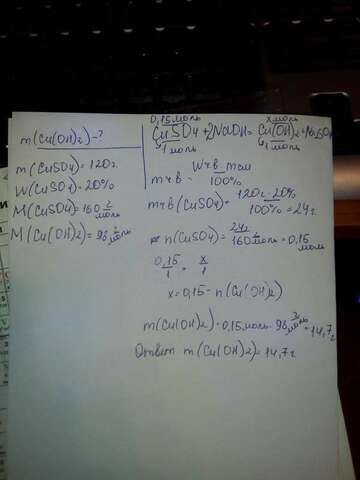 m(Cu(OH)2)-?
m(CuSO4)=120г
W(CuSO4)=20%
M(CuSO4)=160 г/моль
M(Cu(OH)2)=98 г/моль
0,15 моль x моль
CuSO4+2NaOH=Cu(OH)2+Na2SO4
1 моль 1 моль
mчв = Wчв·mсм / 100%
mчв(CuSO4)= 120г·20% / 100% =24г
n(CuSO4)= 24г / 160 г/моль =0,15 моль
0,15/1 = x/1
x=0,15-n(Cu(OH)2)
m(Cu(OH)2)=0,15моль·98 г/моль=14,7г
Ответ m(Cu(OH)2)=14,7г